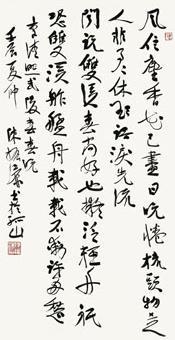 風住塵香花已盡日晚倦梳頭物是
人非事事休欲語淚先流
聞說雙溪春尚好也擬泛輕舟祇
恐雙溪舴艋舟載不動許多愁
李清照武陵春春晚
壬辰夏仲 陳振濂書於孤山